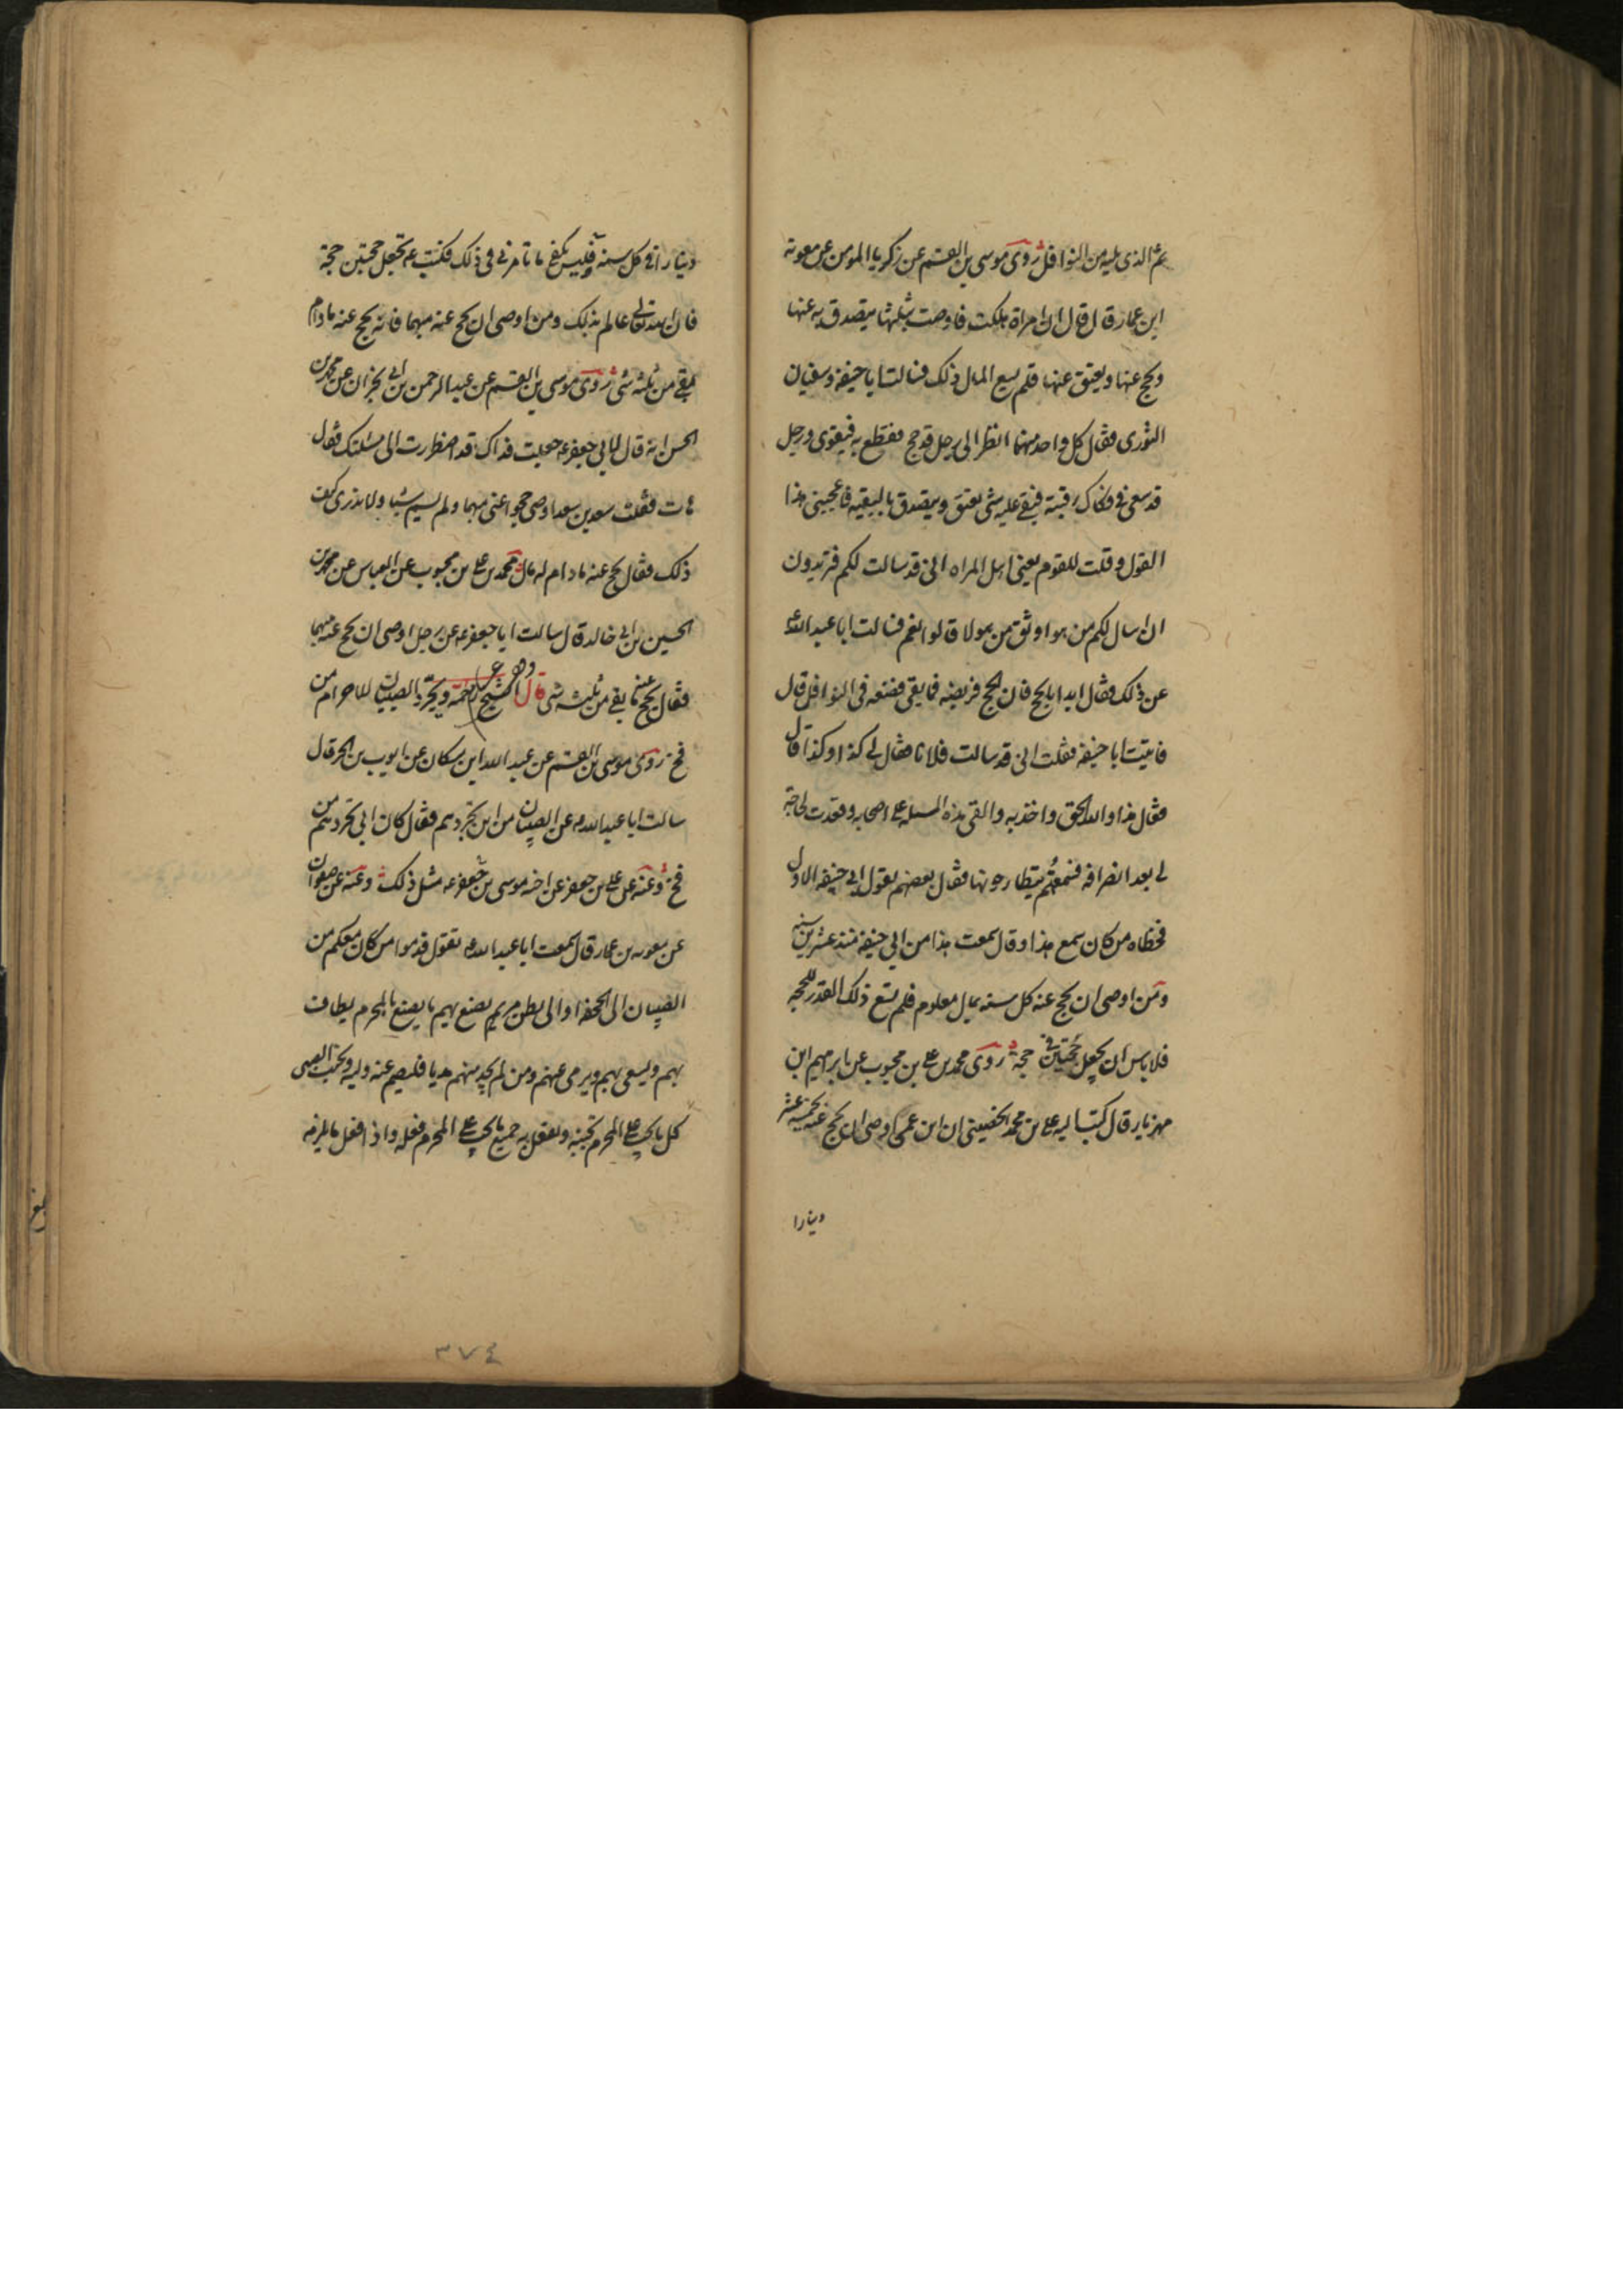 ثم الذي يليه من النوافل روى موسى بن القسم عن زكريا المومن عن معوية
ابن عمار قال قال ان امراة هلكت فاوصت بثلثها يتصدق به عنها
ويحج عنها ويعتق عنها فلم يسع المال ذلك فسالت ابا حنيفة وسفيان
الثوري فقال كل واحد منهما انظر الى رجل قد حج فقطع به فيقوى ورجل
قد سعى في فكاك رقبته فيبقى عليه شي يعتق ويتصدق بالبقيه فاعجبني هذا
القول وقلت للقوم يعني اهل المراه اني قد سالت لكم فتريدون
ان اسال لكم من هو اوثق من هولا قالوا نعم فسالت ابا عبد الله ع
عن ذلك فقال ابدا بالحج فان الحج فريضه فما بقى فضعه في النوافل قال
فاتيت ابا حنيفه فقلت اني قد سالت فلانا فقال لي كذا وكذا قال
فقال هذا والله الحق واخذ به والقى هذه المسله على اصحابه وقعدت لحاجة
لي بعد انصرافه فسمعتهم يتطارحونها فقال بعضهم بقول ابي حنيفه الاول
فخطاه من كان سمع هذا وقال سمعت هذا من ابي حنيفه منذ عشرين سنه
ومن اوصى ان يحج عنه كل سنه بمال معلوم فلم يسع ذلك القدر للحجه
فلا باس ان يجعل حجتين في حجة روى محمد بن علي بن محبوب عن ابراهيم ابن
مهزيار قال كتب اليه علي بن محمد الحضيني ان ابن عمي اوصى ان يحج عنه بخمسة عشر
دينارا
دينارا في كل سنه فليس يكفي ما تامرني في ذلك فكتب ع تجعل حجتين حجة
فان الله تعالى عالم بذلك ومن اوصى ان يحج عنه مبهما فانه يحج عنه ما دام
بقي من ثلثه شي روى موسى بن القسم عن عبد الرحمن بن ابي نجران عن محمد بن
الحسن انه قال لابي جعفر ع جعلت فداك قد اضطررت الى مسئلتك فقال
هات فقلت سعد بن سعد اوصى حجوا عني مبهما ولم يسم شيئا ولا ندري كيف
ذلك فقال يحج عنه ما دام له مال محمد بن علي بن محبوب عن العباس عن محمد بن
الحسين بن ابي خالد قال سالت ابا جعفر ع عن رجل اوصى ان يحج عنه مبهما
فقال يحج عنه ما بقي من ثلثه شي قال الشيخ رحمه ويجرد الصبيان للاحرام من
فخ روى موسى بن القسم عن عبد الله ابن مسكان عن ايوب بن الحر قال
سالت ابا عبد الله ع عن الصبيان من اين نجردهم فقال كان ابي يجردهم من
فخ وعنه عن علي بن جعفر عن اخيه موسى بن جعفر ع مثل ذلك وعنه عن صفوان
عن معويه بن عمار قال سمعت ابا عبد الله ع يقول قدموا من كان معكم من
الصبيان الى الجحفه او الى بطن مر ثم يصنع بهم ما يصنع بالمحرم يطاف
بهم ويسعى بهم ويرمى عنهم ومن لم يجد منهم هديا فليصم عنه وليه ويجنب الصبي
كل ما يجب على المحرم تجنبه ويفعل به جميع ما يجب على المحرم فعله واذا فعل ما يلزمه
٣٧٤